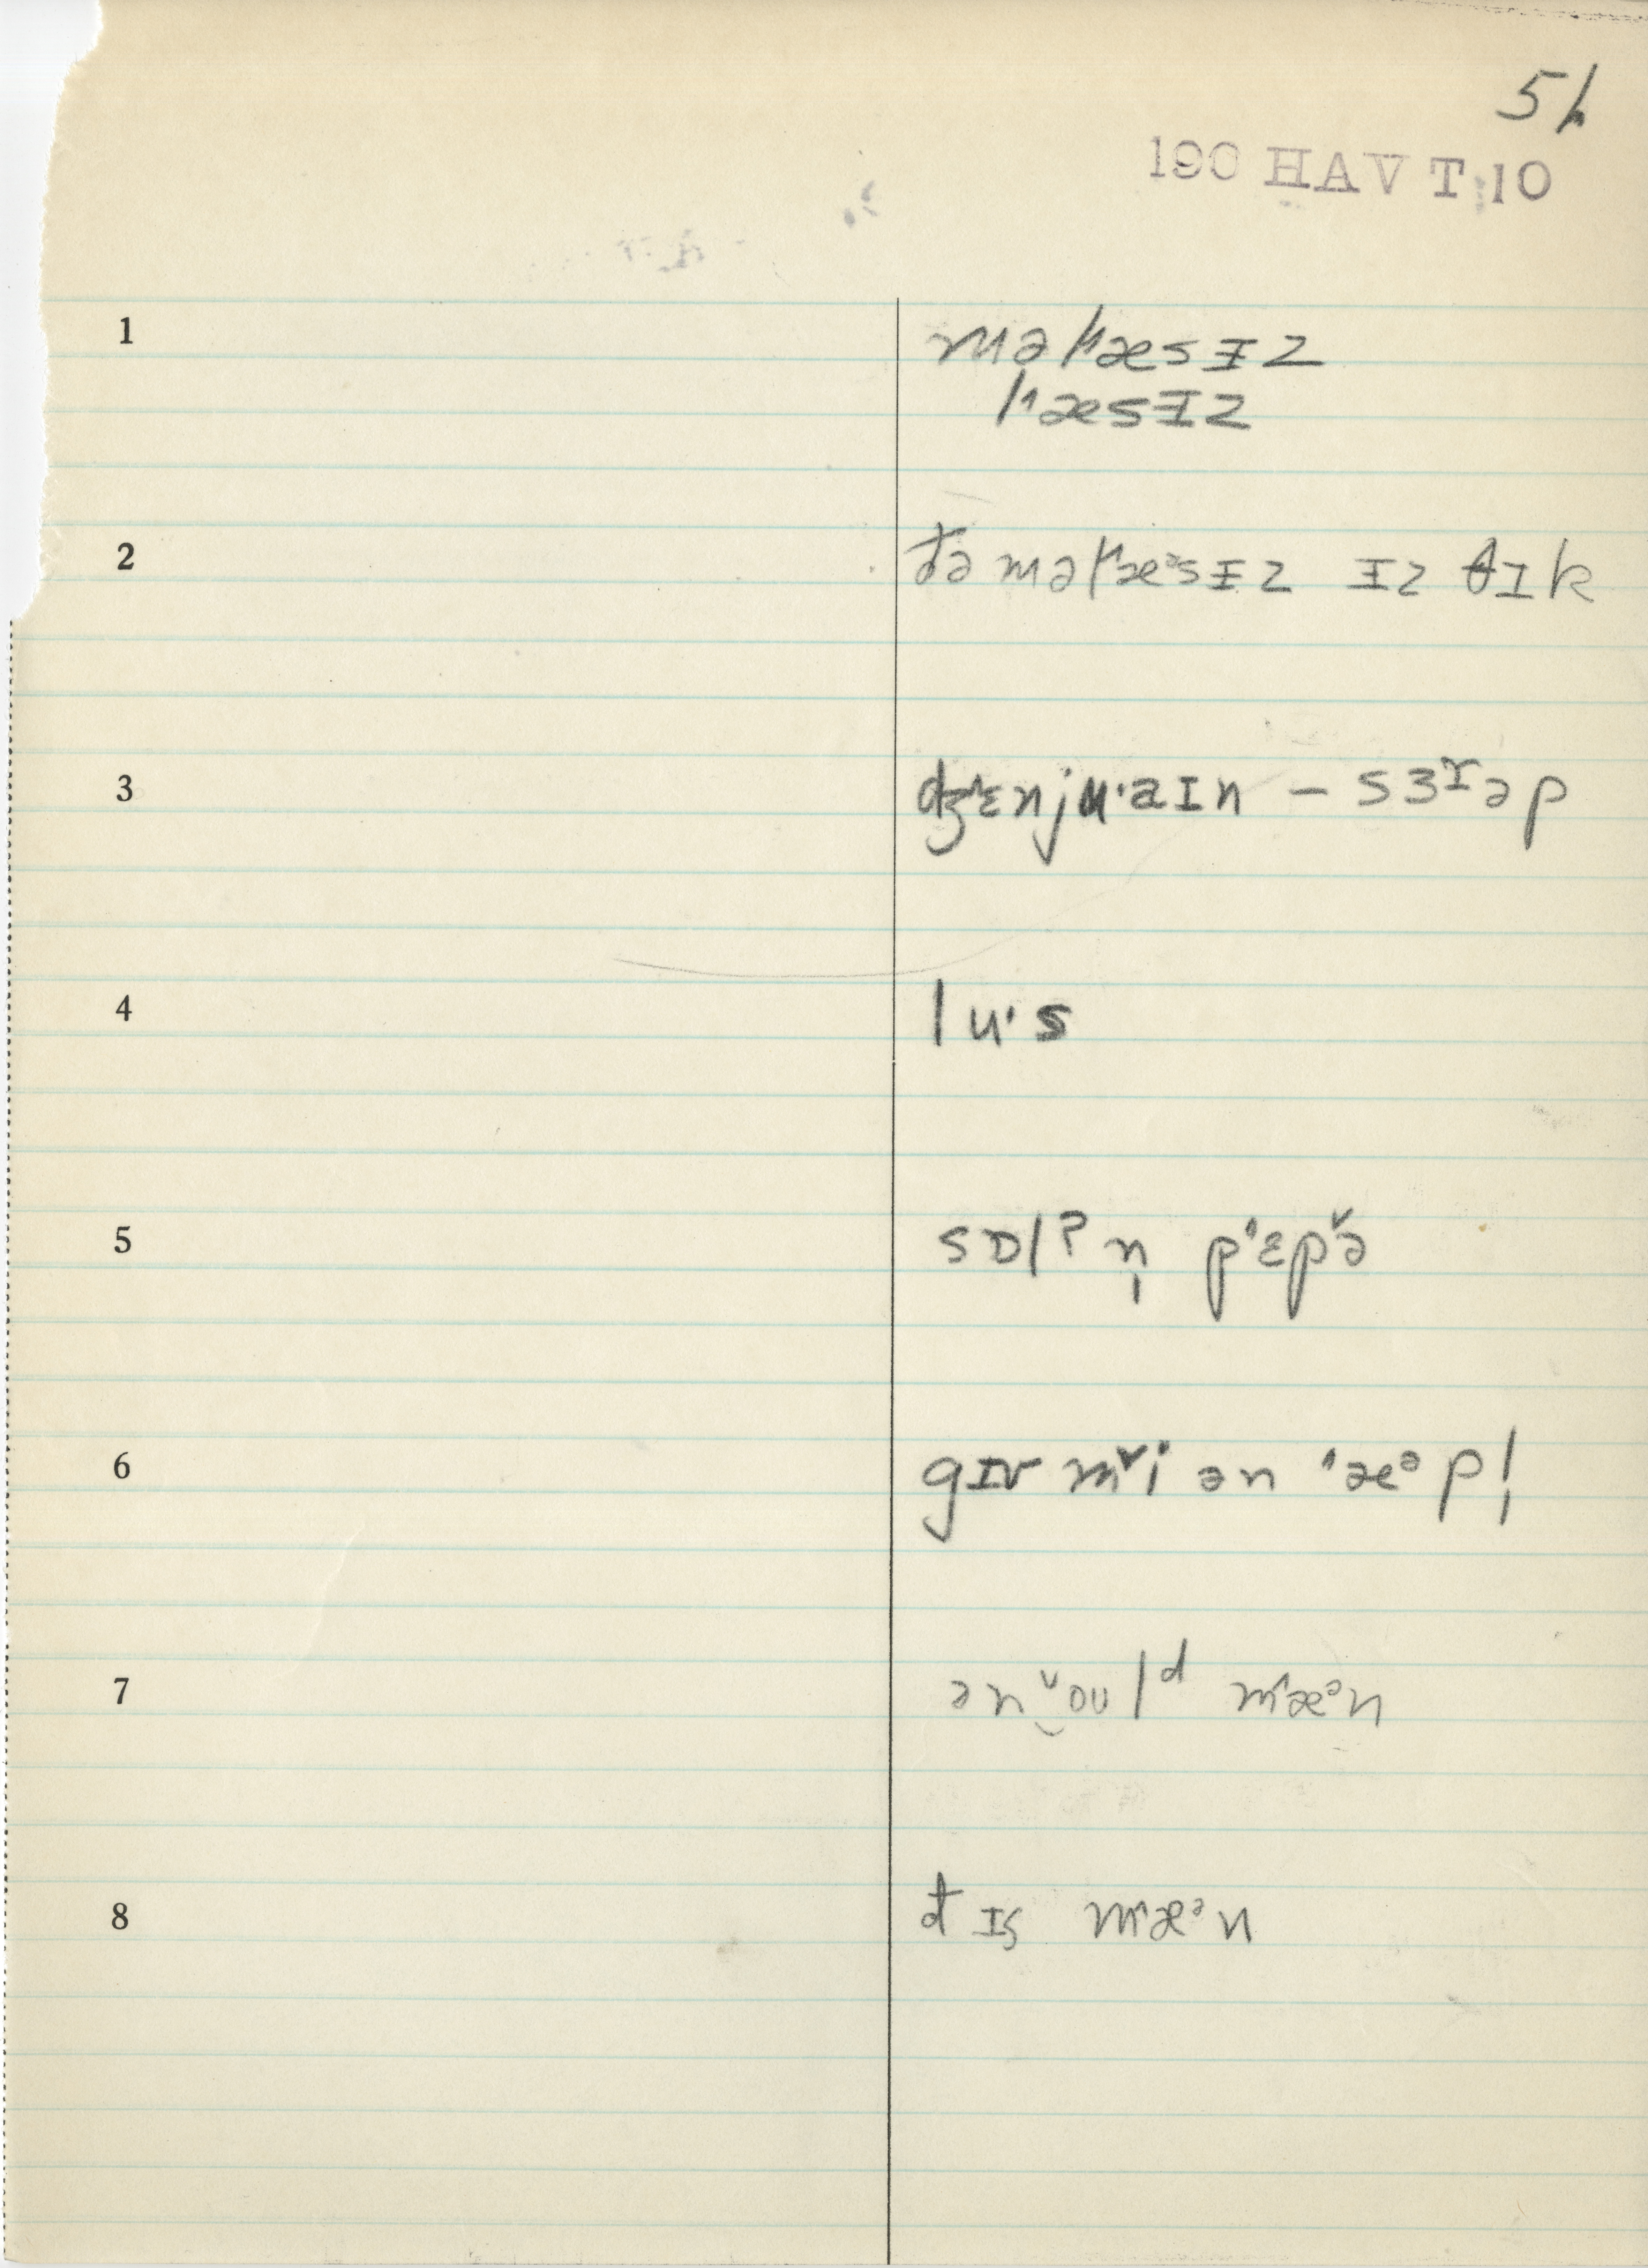 190 HAV T 10
1 məl˄æsɪz
l˄æsɪz
2 đə məl˄æᵊsɪz ɪz θɪk
3 dʒ˄ɛnju˙aɪn – sɜɤəp
4 lu˙s
5 sɒlʔn̩ p˄ɛp˅ə
6 gɪv m˅i ən ˄æᵊpl̩
7 ən‿˅oʊlᵈ m˄æᵊn
8 đɪs m˄æᵊn